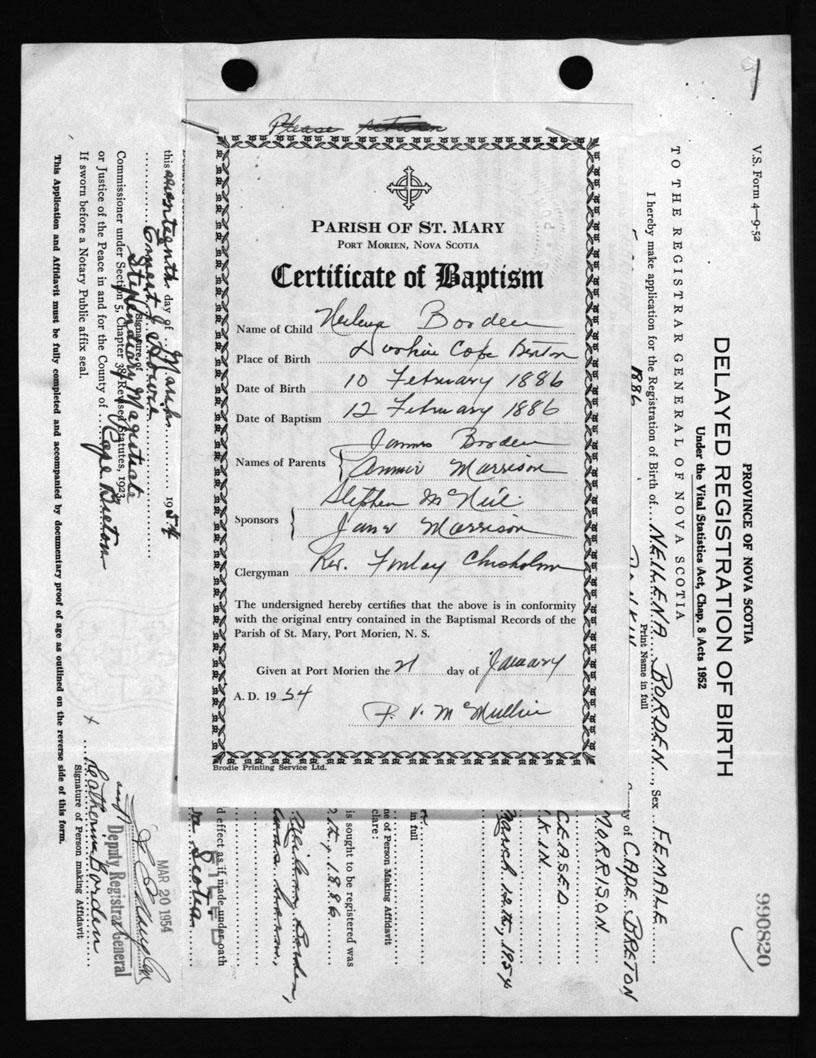 Please return
PARISH OF ST. MARY
PORT MORIEN, NOVA SCOTIA
Certificate of Baptism
Name of Child Neilena Borden
Place of Birth Cape Breton
Date of Birth 10 February 1886
Date of Baptism 12 February 1886
Names of Parents James Borden
Annie Morrison
Sponsors Stephen McNeil
Jane Morrison
Clergyman Rev. Finlay Chisholm
The undersigned hereby certifies that the above is in conformity
with the original entry contained in the Baptismal Records of the
Parish of St. Mary, Port Morien, N. S.
Given at Port Morien the 21 day of January
A. D. 1954
P. V. McMullin
Brodie Printing Service Ltd.
V.S. Form 4—9-52
990820
PROVINCE OF NOVA SCOTIA
DELAYED REGISTRATION OF BIRTH
Under the Vital Statistics Act, Chap. 8 Acts 1952
TO THE REGISTRAR GENERAL OF NOVA SCOTIA
I hereby make application for the Registration of Birth of NEILENA BORDEN Sex FEMALE
Print Name in full
1886 of CAPE BRETON
MORRISON
CEASED
KIN.
March 12th, 1954
in full
me of Person Making Affidavit
clare:
is sought to be registered was
1886
Borden,
d effect as if made under oath
Scotia
this seventeenth day of March 1954
Signature of
Stipendiary Magistrate
Commissioner under Section 5, Chapter 38, Revised Statutes, 1923,
or Justice of the Peace in and for the County of Cape Breton
If sworn before a Notary Public affix seal.
MAR 20 1954
Deputy Registrar General
x Katherine Borden
Signature of Person making Affidavit
This Application and Affidavit must be fully completed and accompanied by documentary proof of age as outlined on the reverse side of this form.